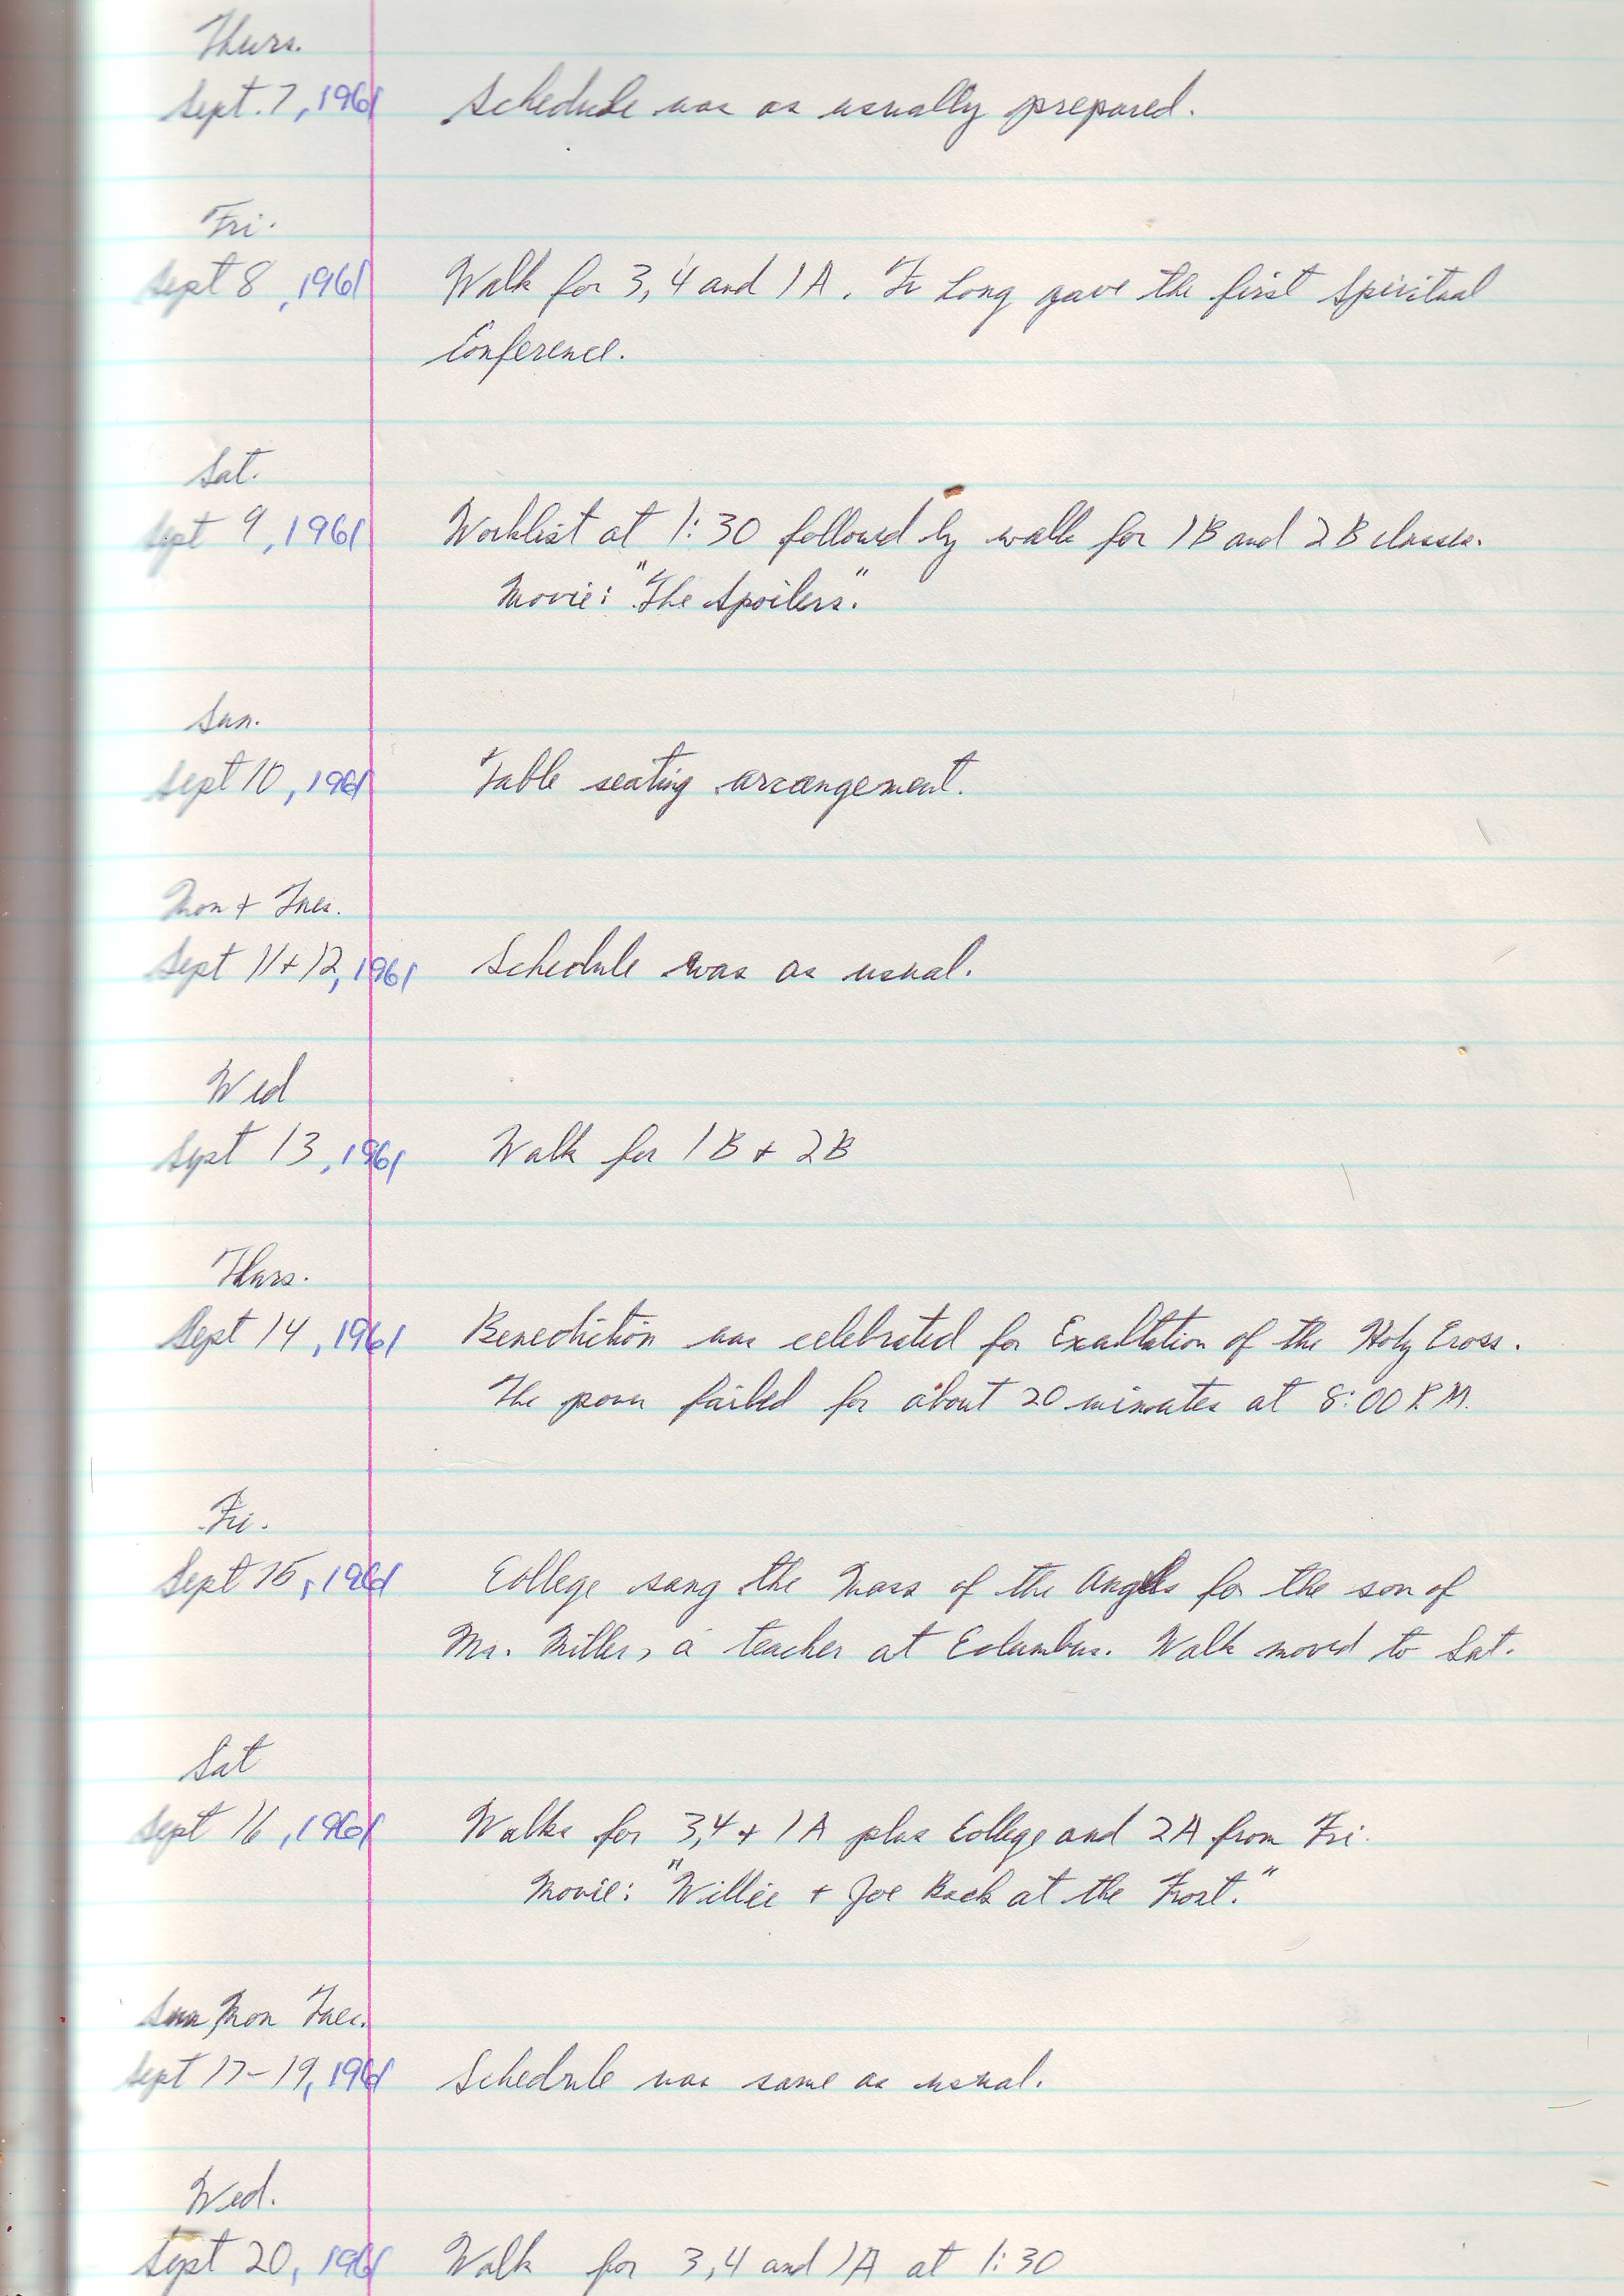 Thurs.
Sept. 7, 1961 Schedule was as usually prepared.
Fri.
Sept 8, 1961 Walk for 3, 4 and 1A. Fr Long gave the first Spiritual
Conference.
Sat.
Sept 9, 1961 Worklist at 1:30 followed by walk for 1B and 2B classes.
Movie: "The Spoilers."
Sun.
Sept 10, 1961 Table seating arrangement.
Mon + Tues.
Sept 11 + 12, 1961 Schedule was as usual.
Wed
Sept 13, 1961 Walk for 1B + 2B
Thurs.
Sept 14, 1961 Benediction was celebrated for Exaltation of the Holy Cross.
The power failed for about 20 minutes at 8:00 P.M.
Fri.
Sept 15, 1961 College sang the Mass of the Angels for the son of
Mr. Miller, a teacher at Columbus. Walk moved to Sat.
Sat
Sept 16, 1961 Walks for 3, 4 + 1A plus College and 2A from Fri.
Movie: "Willie + Joe Back at the Front."
Sun Mon Tues.
Sept 17-19, 1961 Schedule was same as usual.
Wed.
Sept 20, 1961 Walk for 3, 4 and 1A at 1:30